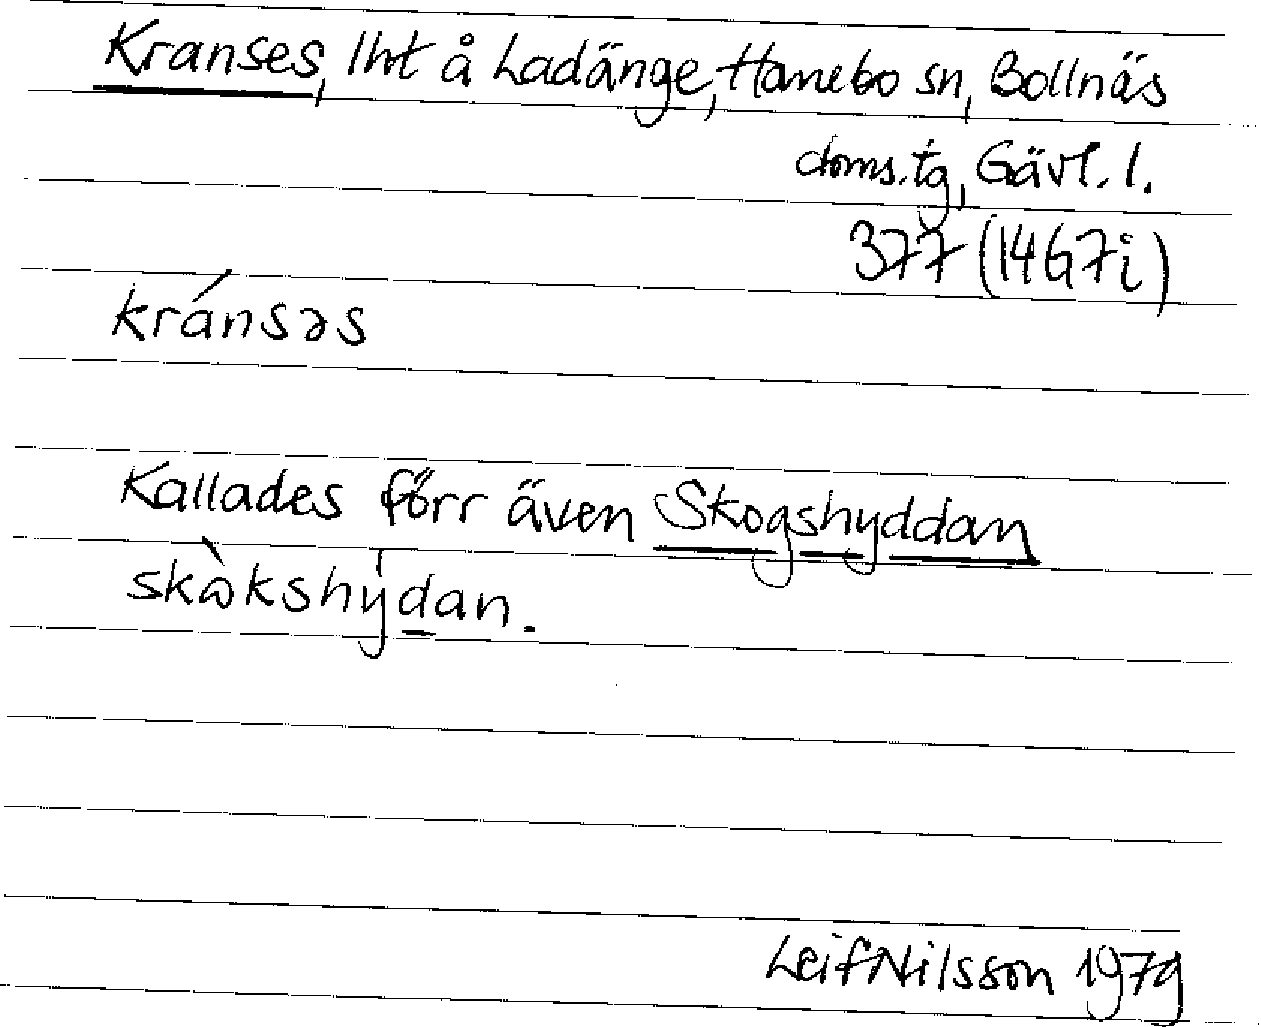 Kranses, lht å Ladänge, Hanebo sn, Bollnäs
doms.tg, Gävl. l.
377 (14G7i)
kránsəs
Kallades förr även Skogshyddan
skὼkshẏdan.
Leif Nilsson 1979